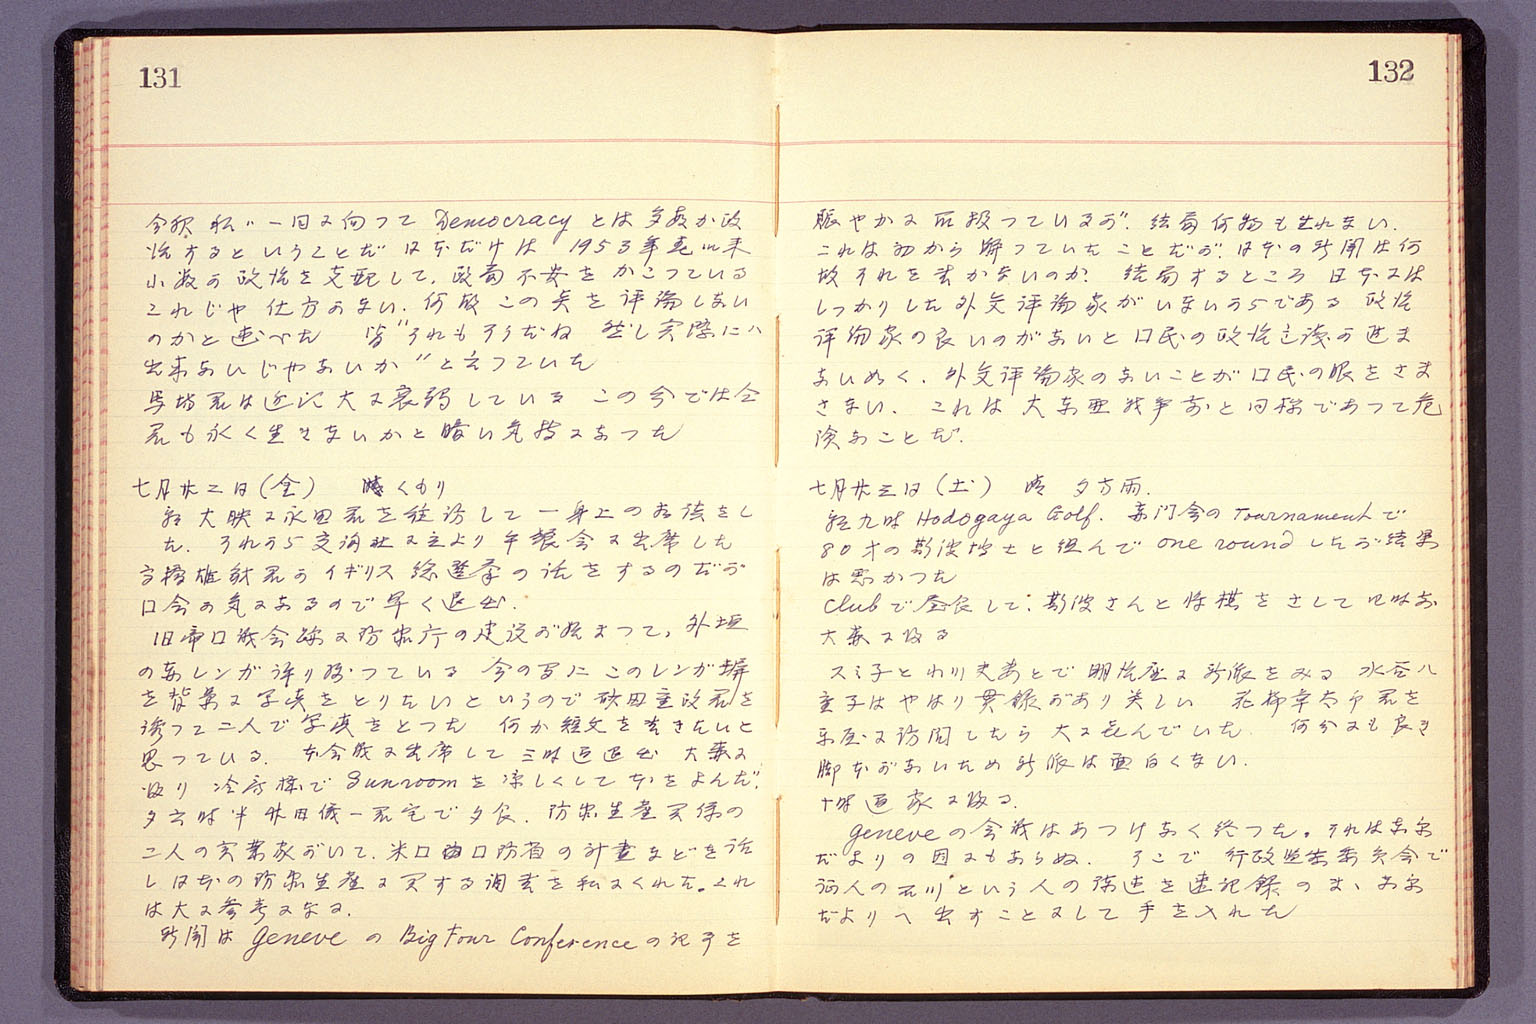 131
今秋 私が一同に向つて Democracy とは多数が政
治するということだ 日本だけは 1953年春以来
小数が政治を支配して、政局不安をかこつている
これじや仕方がない、何故この点を評論しない
のかと述べた 皆"それもそうだね 然し実際にハ
出来ないじやないか"と云つていた
馬場君は近況大に衰弱している この分では全
君も永く生きないかと暗い気持になつた
七月廿二日(金) 晴くもり
大映に永田君を往訪して一身上の お談をし
た、それから交詢社に立より午餐会に出席した
高橋雄豺君がイギリス総選挙の話をするのだが
口会が気になるので早く退出.
旧帝口議会跡に防衛庁の建設が始まつて、外垣
の赤レンガ 残つている 今の中に このレンガ塀
を背景に写真をとりたいというので 砂田重政君を
誘つて二人で写真をとつた 何か短文を書きたいと
思つている. 本会議に出席して三時過退出 大森に
返り 冷房様で Sunroom を涼しくして本をよんだ.
夕六時半 君宅で夕食. 防衛生産 関係の
二人の実業家がいて、米口 口防省の計画などを話
し 日本の防衛生産に関する調書を私にくれた。これ
は大に参考になる.
新聞は Geneve の Big Four Conference の記事を
132
賑やかに取扱つているが、結局何物も生れない.
これは初から解つていたことだが、日本の新聞は何
故それを書かないのか? 結局するところ 日本には
しっかりした外交評論家がいないからである 政治
評論家の良いのがないと口民の政治意識が進ま
ないめく、外交評論家のないことが口民の眼をさま
さない. これは大東亜戦争前と同様であつて危
険なことだ.
七月廿三日(土) 晴 夕方雨.
九時 Hodogaya Golf. 赤門会の Tournament で
80才の斯波博士と組んで one round したが結果
は悪かつた
Club で昼食して、斯波さんと将棋をさして四時お
大森に返る
スミ子とわり夫あとで明治座に新派をみる 水谷八
重子はやはり貫録があり美しい 花柳章太郎君を
楽屋に訪問したら大に喜んでいた 何分にも良き
脚本がないため新派は面白くない.
十時過家に返る.
Geneve の会議はあつけなく終つた。それはお布
だよりの図にもあらぬ. そこで 行政監察委員会で
証人の石川という人の陳述を速記録のまゝ お布
だよりへ出すことにして手を入れた